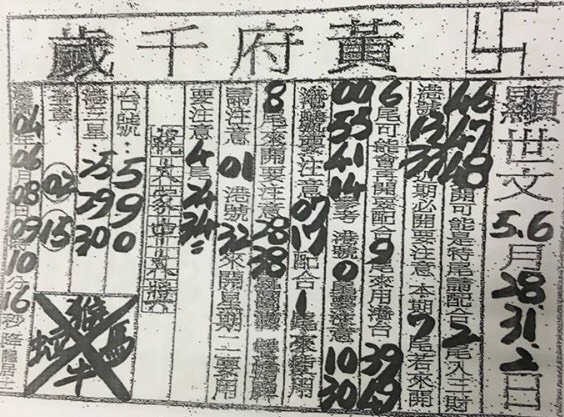 卍
黃府千歲
顯世文 5.6月 28. 31. 2日
46 47 48 開可能是特尾請配合 2 尾入三財
港號 13 33 期必開要注意 本期 7 尾若來開
6 尾可能會再開要配合 9 尾來用港台 39 49
00 55 41 14 港號 0 尾 注意 10 30
港號要注意 07 17 配合 1 尾來衝用
8 尾來開要注意 28 38
歸注意 01 港號 32 來開星期二要用
要注意 4 尾 24 34 =
祝大家中大獎
台號: 5 9 0
港三星: 25 29 30
02 15
04 年 06 月 08 日 09 時 10 分 16 秒降龍居士
猴 馬 牛 蛇